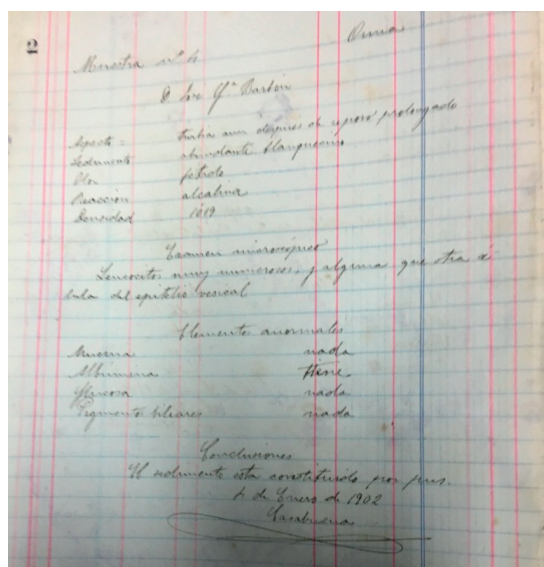 2
Orina
Muestra nº 4
D. José Mª Barbón
Aspecto: turbia aun despues de reposo prolongado
Sedimento abundante blanquecino
Olor fetido
Reacción alcalina
Densidad 1019
Examen microscópico
Leucocitos muy numerosos, y alguna que otra cé-
lula del epitelio vesical
Elementos anormales
Mucina nada
Albumina tiene
Glucosa nada
Pigmentos biliares nada
Conclusiones
El sedimento esta constituido por pus.
4 de Enero de 1902